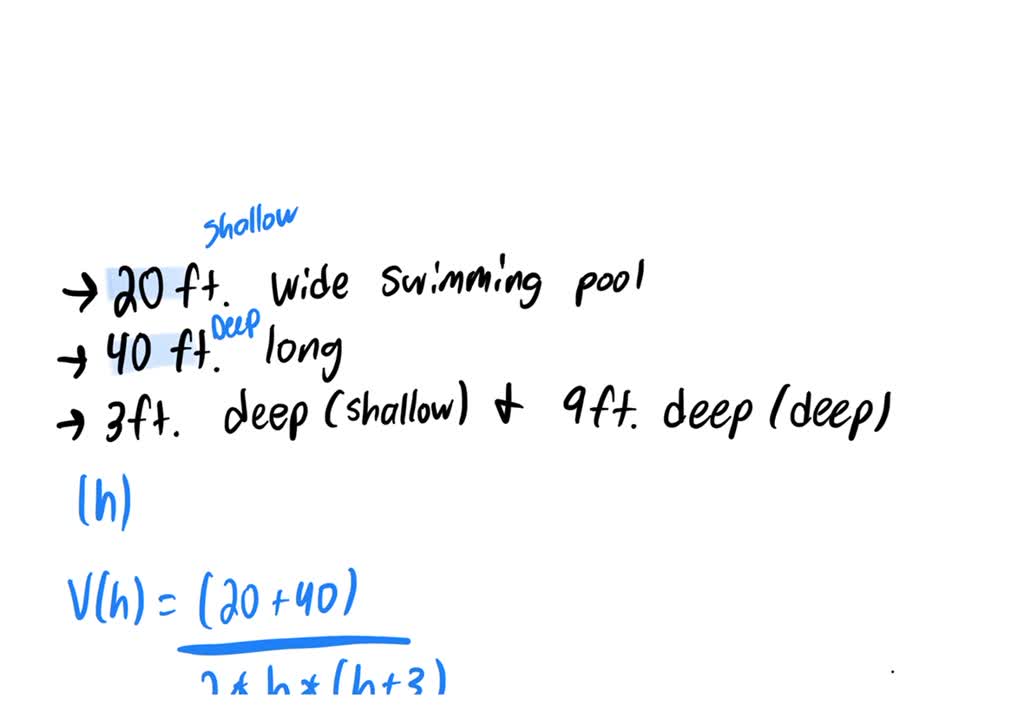 shallow
→ 20 ft. wide swimming pool
Deep
→ 40 ft. long
→ 3ft. deep (shallow) & 9ft. deep (deep)
(h)
V(h) = (20 + 40)
2 * h * (h+3)